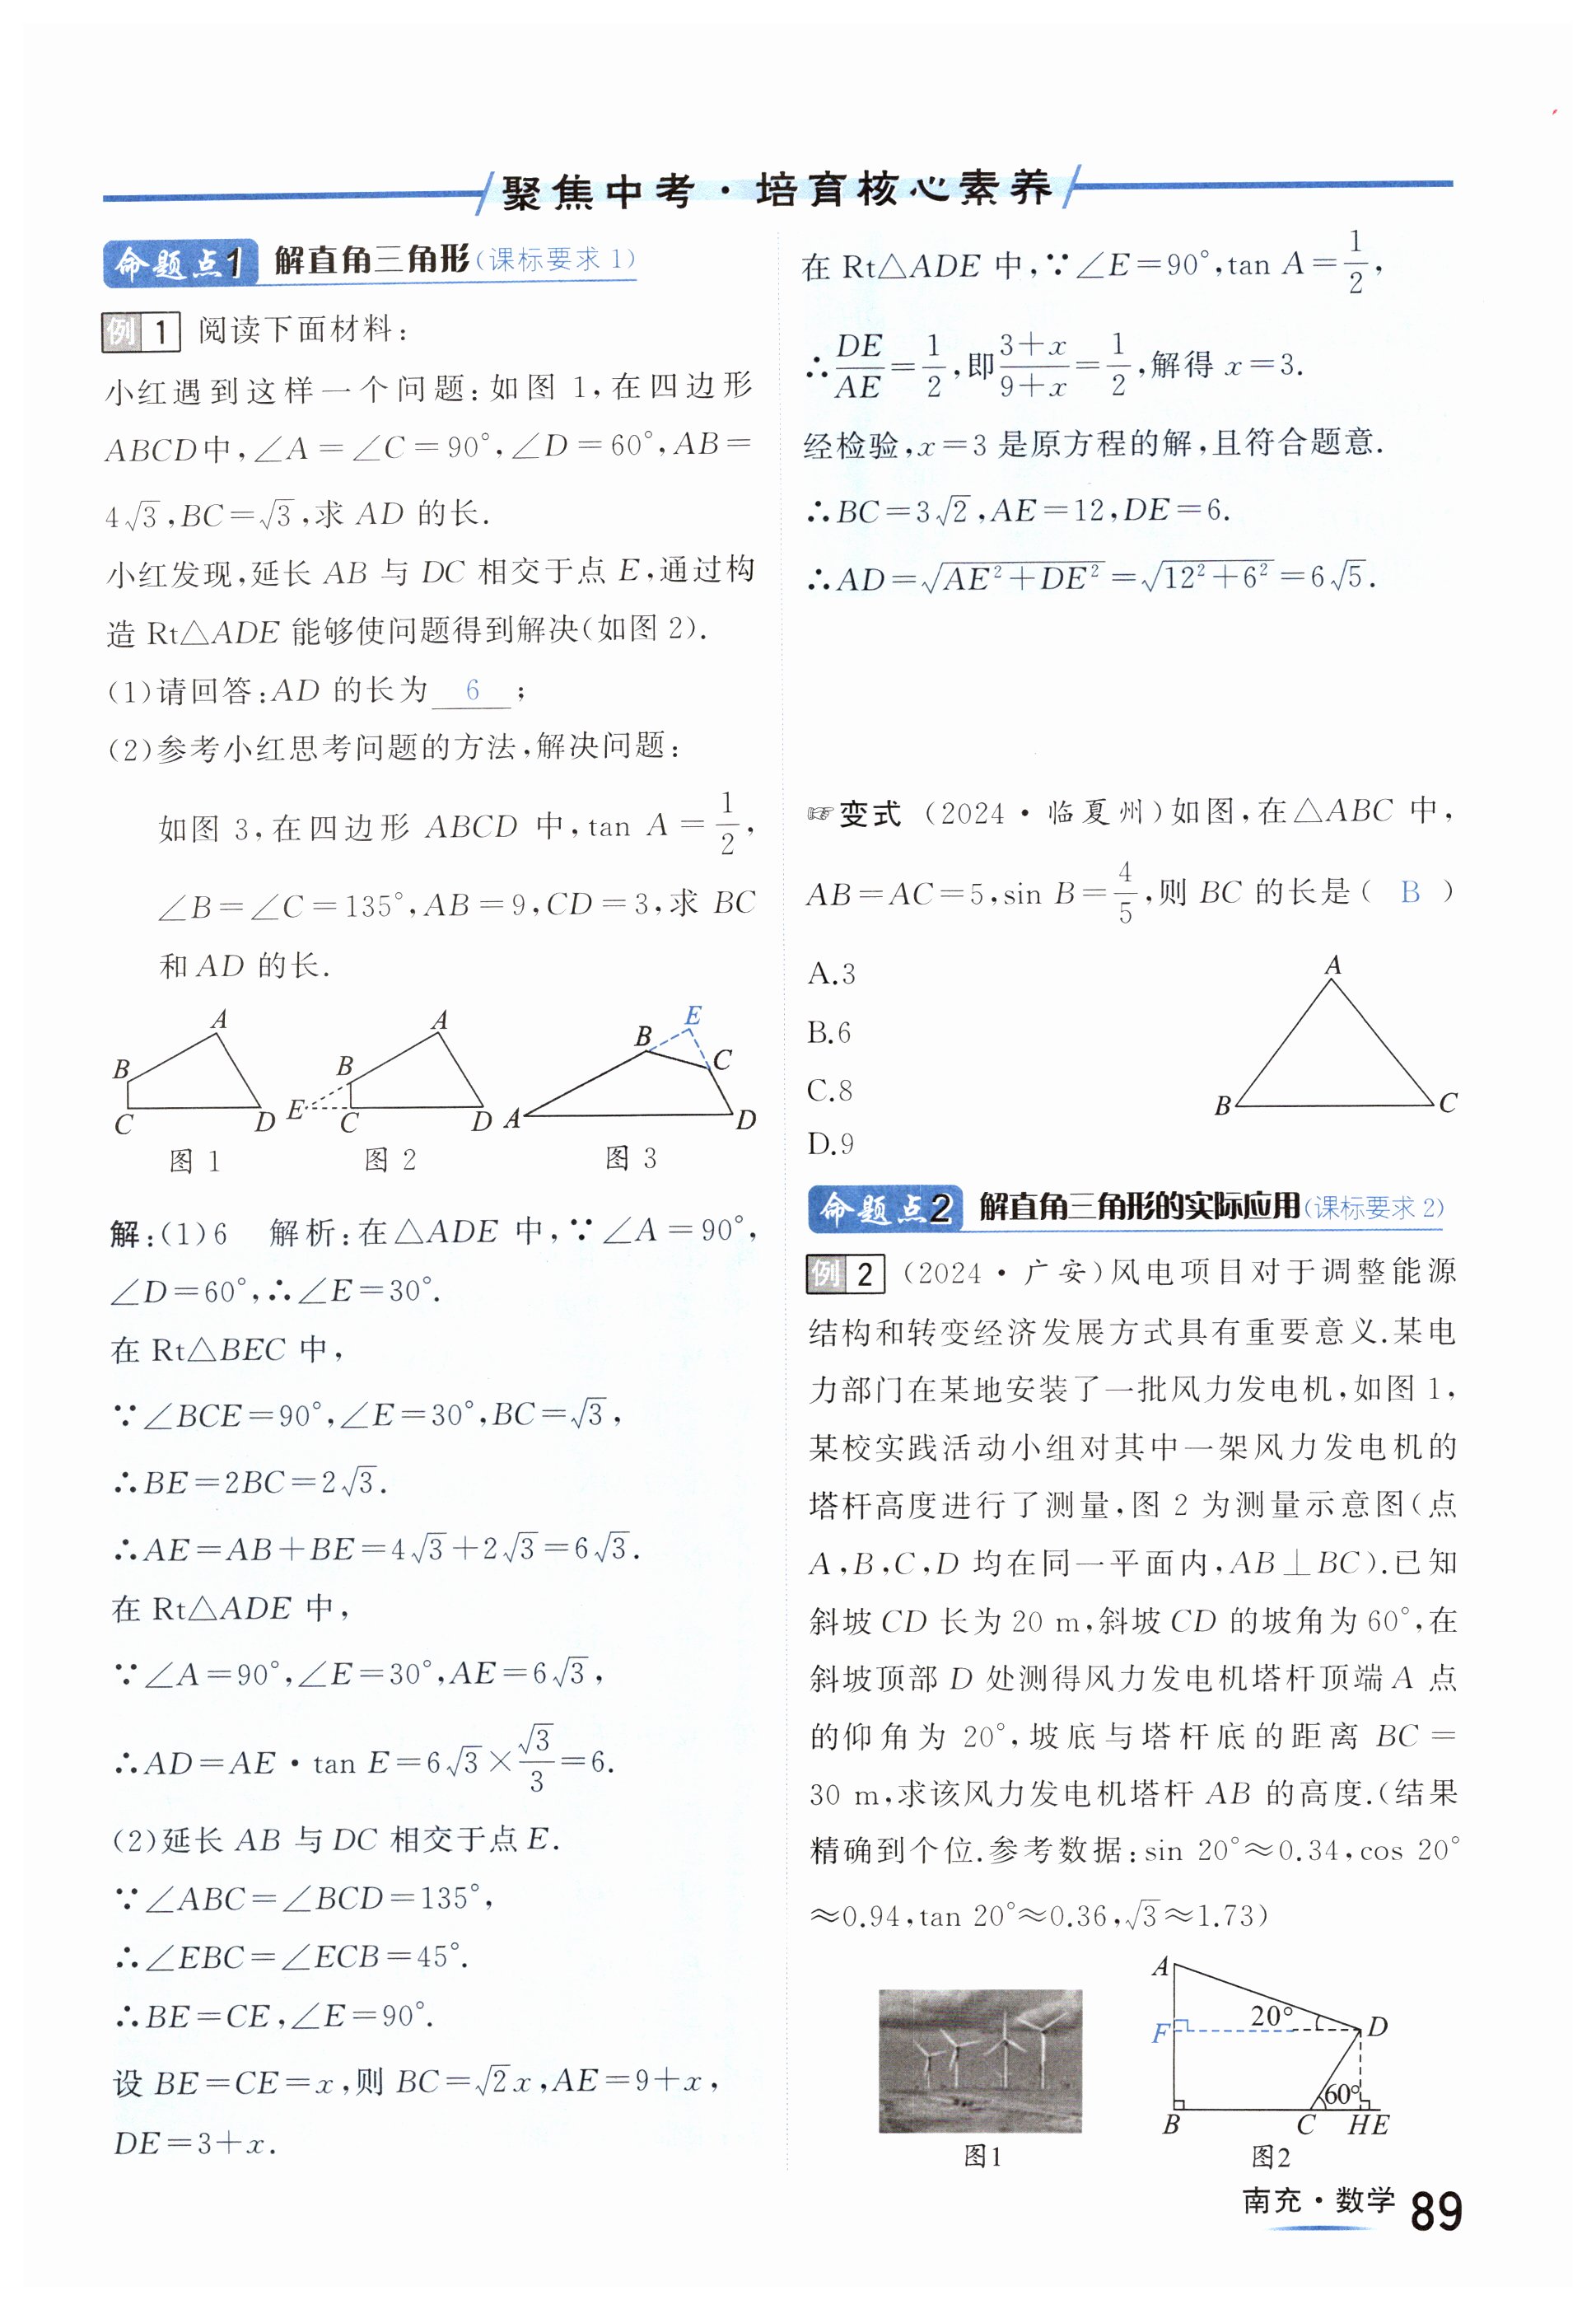 聚焦中考·培育核心素养
命题点1 解直角三角形(课标要求1)
例1 阅读下面材料:
小红遇到这样一个问题:如图1,在四边形
ABCD中,∠A=∠C=90°,∠D=60°,AB=
4√3,BC=√3,求AD的长.
小红发现,延长AB与DC相交于点E,通过构
造Rt△ADE能够使问题得到解决(如图2).
(1)请回答:AD的长为 6 ;
(2)参考小红思考问题的方法,解决问题:
如图3,在四边形ABCD中,tan A=1/2,
∠B=∠C=135°,AB=9,CD=3,求BC
和AD的长.
A
B
C
D
图1
A
B
E
C
D
图2
E
B
C
A
D
图3
解:(1)6 解析:在△ADE中,∵∠A=90°,
∠D=60°,∴∠E=30°.
在Rt△BEC中,
∵∠BCE=90°,∠E=30°,BC=√3,
∴BE=2BC=2√3.
∴AE=AB+BE=4√3+2√3=6√3.
在Rt△ADE中,
∵∠A=90°,∠E=30°,AE=6√3,
∴AD=AE·tan E=6√3×√3/3=6.
(2)延长AB与DC相交于点E.
∵∠ABC=∠BCD=135°,
∴∠EBC=∠ECB=45°.
∴BE=CE,∠E=90°.
设BE=CE=x,则BC=√2x,AE=9+x,
DE=3+x.
在Rt△ADE中,∵∠E=90°,tan A=1/2,
∴DE/AE=1/2,即(3+x)/(9+x)=1/2,解得x=3.
经检验,x=3是原方程的解,且符合题意.
∴BC=3√2,AE=12,DE=6.
∴AD=√(AE²+DE²)=√(12²+6²)=6√5.
☞变式 (2024·临夏州)如图,在△ABC中,
AB=AC=5,sin B=4/5,则BC的长是( B )
A.3
B.6
C.8
D.9
A
B
C
命题点2 解直角三角形的实际应用(课标要求2)
例2 (2024·广安)风电项目对于调整能源
结构和转变经济发展方式具有重要意义.某电
力部门在某地安装了一批风力发电机,如图1,
某校实践活动小组对其中一架风力发电机的
塔杆高度进行了测量,图2为测量示意图(点
A,B,C,D均在同一平面内,AB⊥BC).已知
斜坡CD长为20 m,斜坡CD的坡角为60°,在
斜坡顶部D处测得风力发电机塔杆顶端A点
的仰角为20°,坡底与塔杆底的距离BC=
30 m,求该风力发电机塔杆AB的高度.(结果
精确到个位.参考数据:sin 20°≈0.34,cos 20°
≈0.94,tan 20°≈0.36,√3≈1.73)
图1
A
20°
F
D
60°
B
C
H
E
图2
南充·数学 89